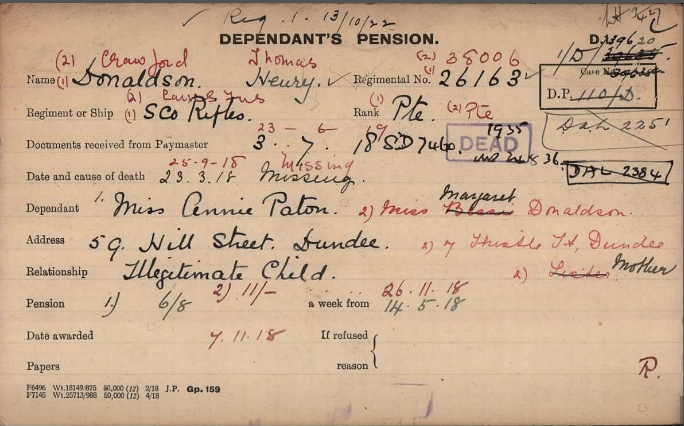 Reg. 1. 13/10/22
DEPENDANT'S PENSION.
D.
1/D/
(2) Crawford Thomas (2) 38006
Name (1) Donaldson. Henry. Regimental No. (1) 26163
D.P. 110/D.
(2) (1) (2) Pte
Regiment or Ship (1) Sco Rifles. Rank Pte.
DAL 2251
23 - 6 - 19 1935
Documents received from Paymaster 3. 7. 18
DEAD
36
DAL 2384
25-9-18 Missing
Date and cause of death 23.3.18 Missing.
Margaret
Dependant 1. Miss Annie Paton. 2) Miss Donaldson.
Address 59. Hill Street. Dundee. 2) 7 Thistle St, Dundee
Relationship Illegitimate Child. 2) Sister Mother
2) 11/- 26.11.18
Pension 1) 6/8 a week from 14.5.18
Date awarded 7.11.18 If refused
Papers reason
R.
F6496 Wt.18149/875 50,000 (12) 2/18 J.P. Gp. 159
F7145 Wt.25713/988 50,000 (12) 4/18